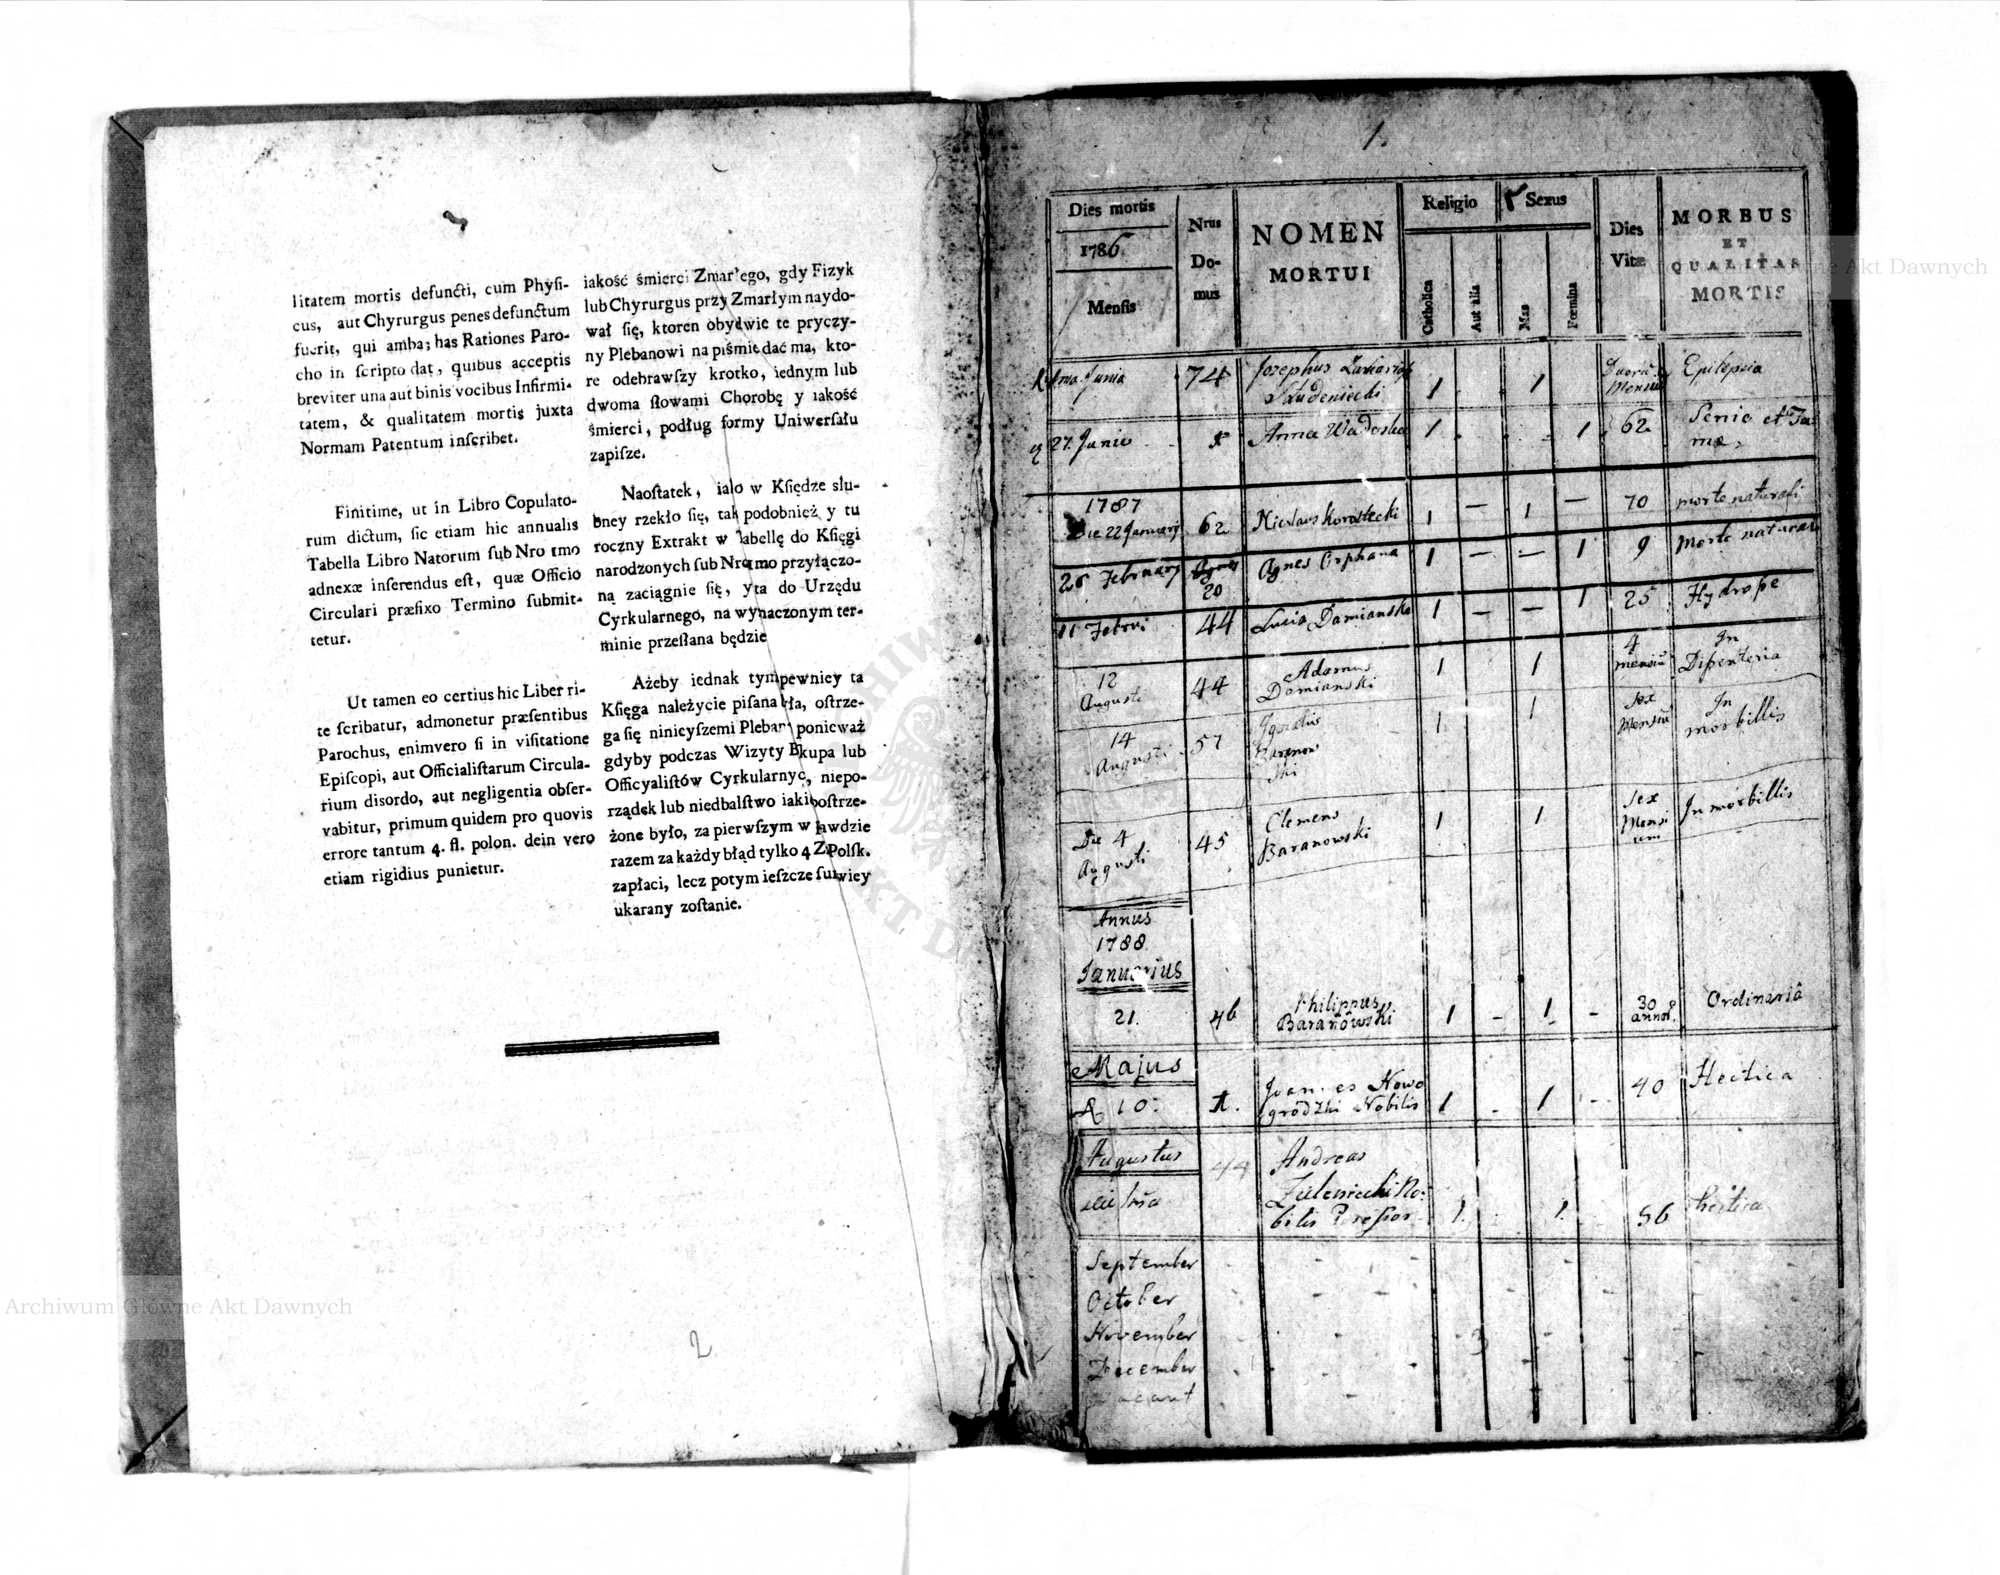 litatem mortis defuncti, cum Phyſi-
cus, aut Chyrurgus penes defunctum
fuerit, qui amba; has Rationes Paro-
cho in ſcripto dat, quibus acceptis
breviter una aut binis vocibus Infirmi-
tatem, & qualitatem mortis juxta
Normam Patentum inſcribet.
Finitime, ut in Libro Copulato-
rum dictum, ſic etiam hic annualis
Tabella Libro Natorum ſub Nro tmo
adnexæ inſerendus eſt, quæ Officio
Circulari præfixo Termino ſubmit-
tetur.
Ut tamen eo certius hic Liber ri-
te ſcribatur, admonetur præſentibus
Parochus, enimvero ſi in viſitatione
Epiſcopi, aut Officialiſtarum Circula-
rium disordo, aut negligentia obſer-
vabitur, primum quidem pro quovis
errore tantum 4. fl. polon. dein vero
etiam rigidius punietur.
iakość śmierci Zmarłego, gdy Fizyk
lub Chyrurgus przy Zmarłym naydo-
wał ſię, ktoren obydwie te pryczy-
ny Plebanowi na piśmie dać ma, kto-
re odebrawſzy krotko, iednym lub
dwoma ſłowami Chorobę y iakość
śmierci, podług formy Uniwerſału
zapiſze.
Naoſtatek, iało w Kſiędze slu-
bney rzekło ſię, tak podobnież y tu
roczny Extrakt w Tabellę do Kſięgi
narodzonych ſub Nro 1mo przyłączo-
ną zaciągnie ſię, y ta do Urzędu
Cyrkularnego, na wyznaczonym ter-
minie przeſłana będzie
Ażeby iednak tym pewniey ta
Kſięga należycie piſana była, oſtrze-
ga ſię ninieyſzemi Pleban ponieważ
gdyby podczas Wizyty Bkupa lub
Officyaliſtów Cyrkularnyc, niepo-
rządek lub niedbalſtwo iakie oſtrze-
żone było, za pierwſzym w prawdzie
razem za każdy błąd tylko 4 Z. Polſk.
zapłaci, lecz potym ieſzcze ſurowiey
ukarany zoſtanie.
2
1.
Dies mortis
1786
Menſis
Nrus
Do-
mus
NOMEN
MORTUI
Religio
Catholica
Aut alia
Sexus
Mas
Fœmina
Dies
Vitæ
MORBUS
ET
QUALITAS
MORTIS
1ma Junia 74 Jozephus 1 1 Epilepsia
27. Junio 1 Anna 1 1 62 Senio et
1787
Die 22 Januarij 62 Nicolaus 1 — 1 — 70 morte naturali
26 Februarij 20 Agnes Orphana 1 — — 1 9 Morte natural
11 Febrvi 44 Lucia Damianska 1 — — 1 25 Hydrope
12 Augusti 44 Adamus Damianski 1 1 4 mensiū In Disenteria
14 Augusti 57 Ignatius Baranowski 1 1 Sex Mensiū In morbillis
Die 4 Augusti 45 Clemens Baranowski 1 1 Sex Mensium In morbillis
Annus
1788
Januarius
21. 46 Philippus Baranowski 1 - 1 - 30 annor. Ordinaria
Majus
10. 1. Joannes Nowogrodzki Nobilis 1 - 1 - 40 Hectica
Augustus
44 Andreas Zieleniecki Nobilis 1. - 1. 56 Hectica
September
October
November
December
vacant
Archiwum Główne Akt Dawnych
Archiwum Główne Akt Dawnych